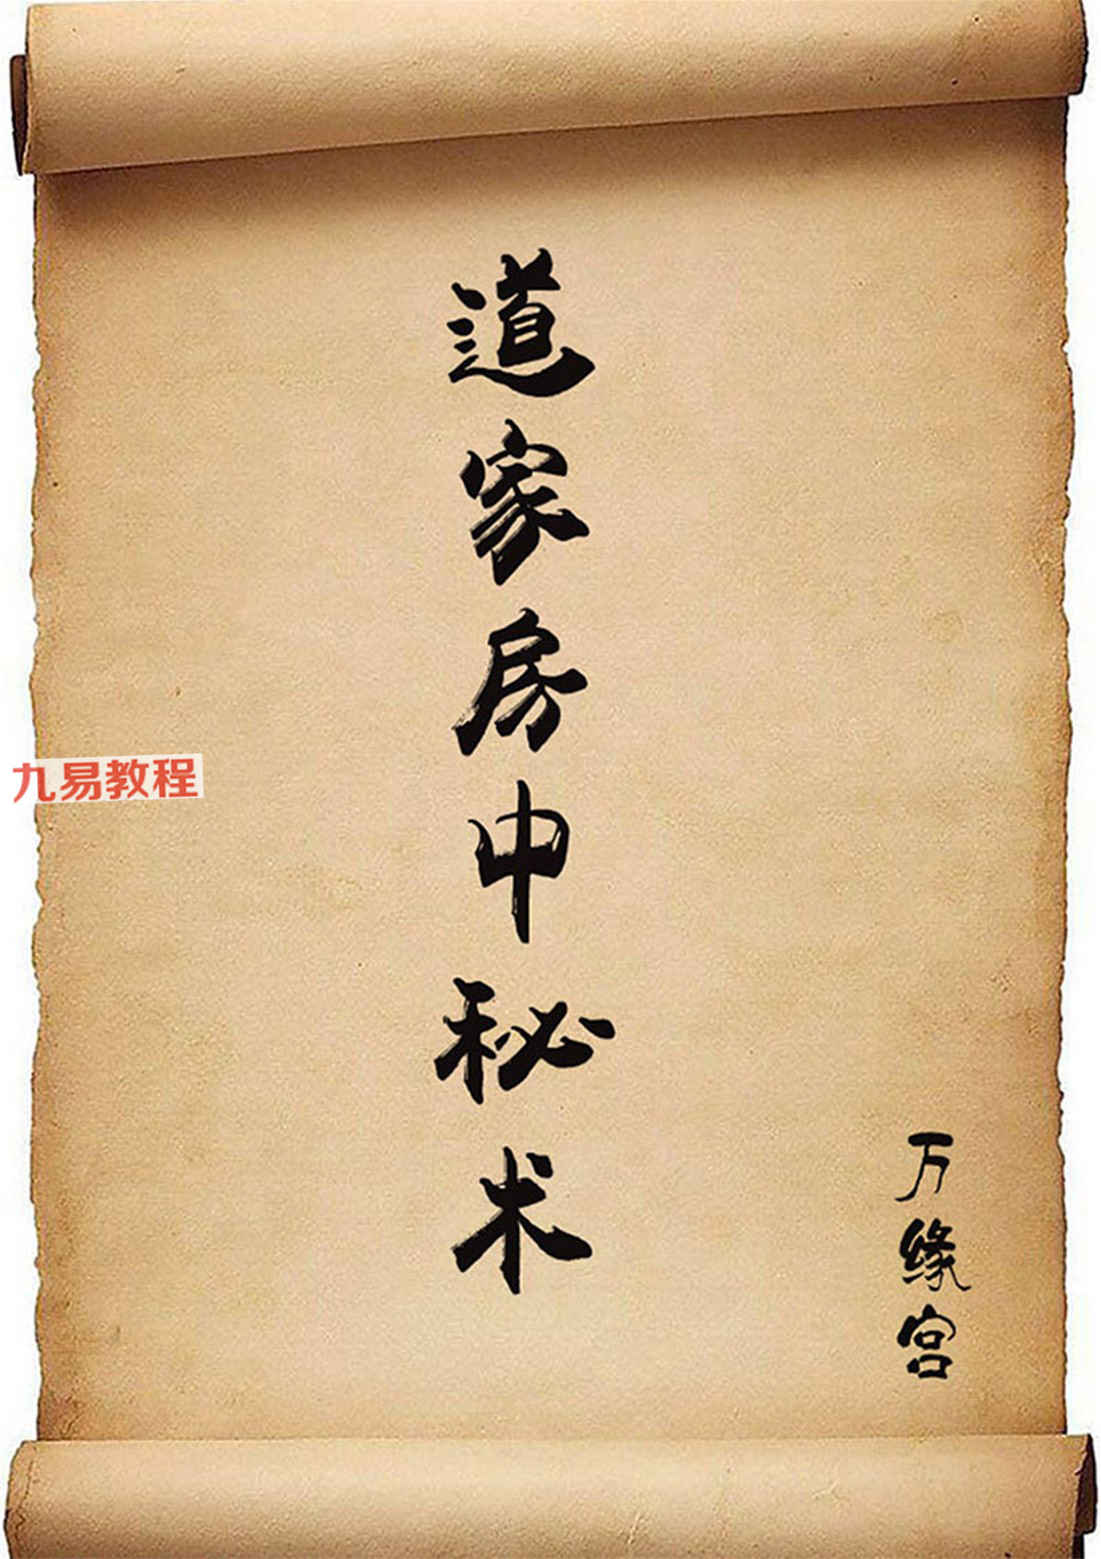 道家房中秘术
万缘宫
九易教程